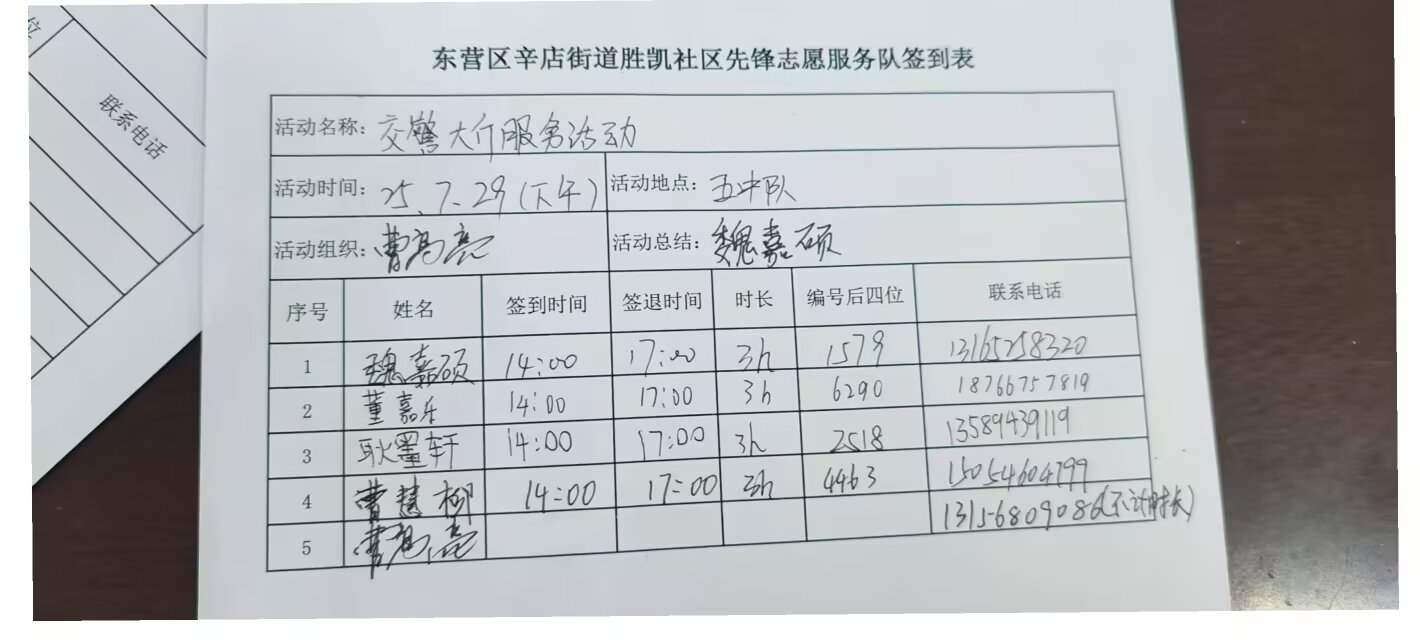 位
联系电话
东营区辛店街道胜凯社区先锋志愿服务队签到表
活动名称：交警大厅服务活动
活动时间：25.7.29（下午） 活动地点：五中队
活动组织：曹高亮 活动总结：魏嘉硕
序号 姓名 签到时间 签退时间 时长 编号后四位 联系电话
1 魏嘉硕 14:00 17:00 3h 1579 13165258320
2 董嘉乐 14:00 17:00 3h 6290 18766757819
3 耿墨轩 14:00 17:00 3h 2518 13589439119
4 曹慧柳 14:00 17:00 3h 4463 15054604799
5 曹高亮 13156809086（不计时长）